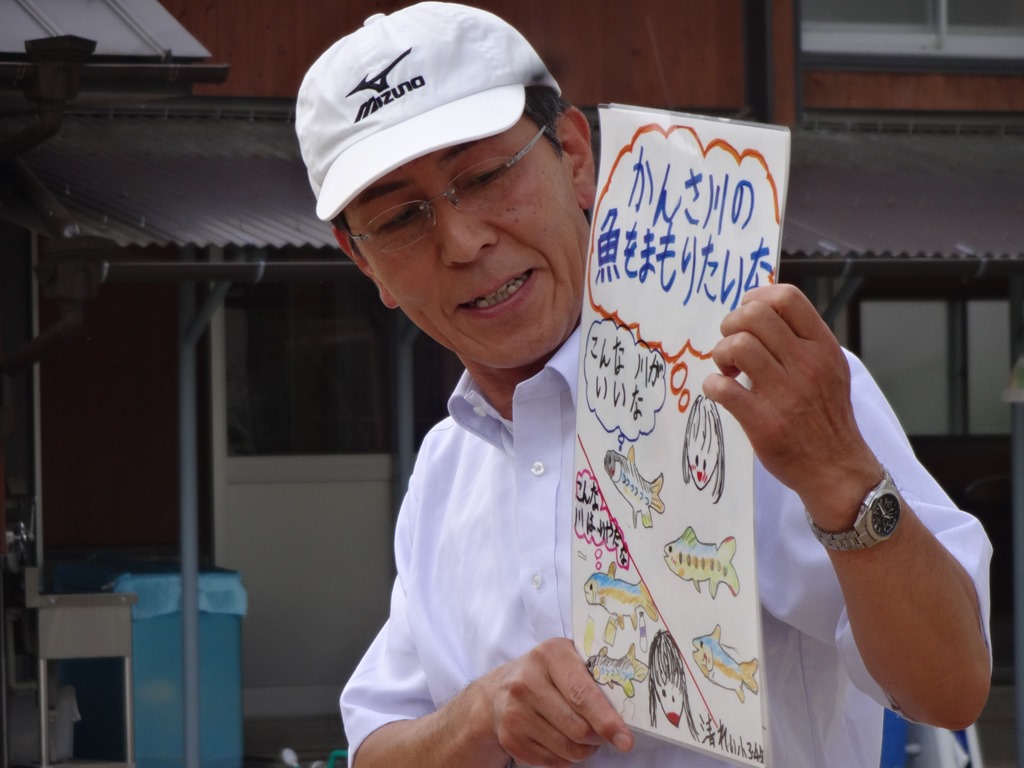 MIZUNO
かんさ川の
魚をまもりたいな
こんな川が
いいな
こんな
川はいやだな